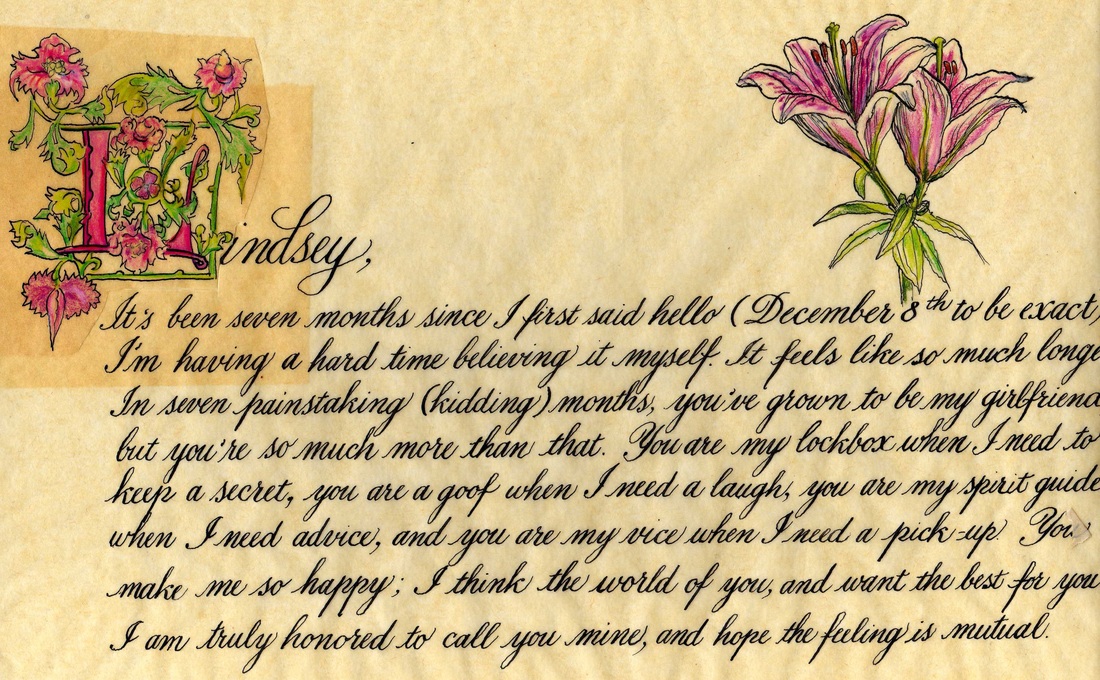 Lindsey,
It's been seven months since I first said hello (December 8th to be exact)
I'm having a hard time believing it myself. It feels like so much longe
In seven painstaking (kidding) months, you've grown to be my girlfriend
but you're so much more than that. You are my lockbox when I need to
keep a secret, you are a goof when I need a laugh, you are my spirit guide
when I need advice, and you are my vice when I need a pick-up. You
make me so happy; I think the world of you, and want the best for you
I am truly honored to call you mine, and hope the feeling is mutual.